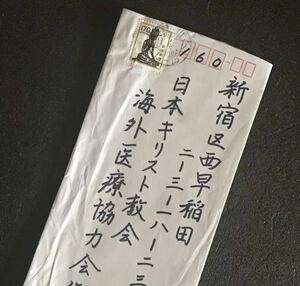 170
160
新宿区西早稲田
二ー三ー一八ー二三
日本キリスト教会
海外医療協力会